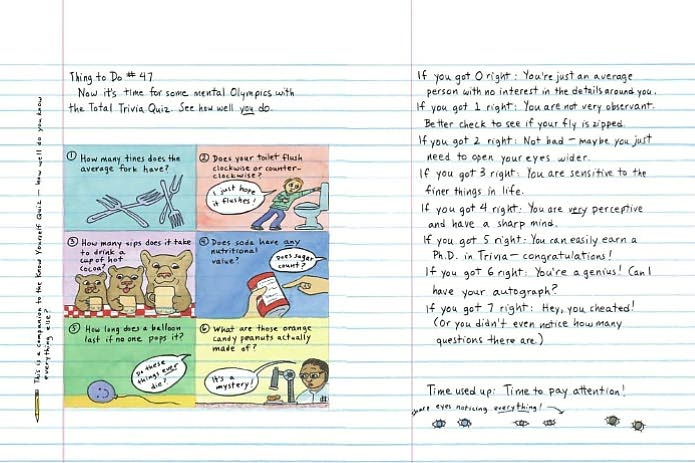 Thing to Do # 47
Now it's time for some mental Olympics with
the Total Trivia Quiz. See how well you do.
This is a companion to the Know Yourself Quiz — how well do you know
everything else?
① How many tines does the
average fork have?
② Does your toilet flush
clockwise or counter-
clockwise?
I just hope
it flushes!
③ How many sips does it take
to drink a
cup of hot
cocoa?
④ Does soda have any
nutritional
value?
Does sugar
count?
⑤ How long does a balloon
last if no one pops it?
Do these
things ever
die?
⑥ What are those orange
candy peanuts actually
made of?
It's a
mystery!
If you got 0 right: You're just an average
person with no interest in the details around you.
If you got 1 right: You are not very observant.
Better check to see if your fly is zipped.
If you got 2 right: Not bad — maybe you just
need to open your eyes wider.
If you got 3 right: You are sensitive to the
finer things in life.
If you got 4 right: You are very perceptive
and have a sharp mind.
If you got 5 right: You can easily earn a
Ph.D. in Trivia — congratulations!
If you got 6 right: You're a genius! Can I
have your autograph?
If you got 7 right: Hey, you cheated!
(Or you didn't even notice how many
questions there are.)
Time used up: Time to pay attention!
eyes noticing everything!